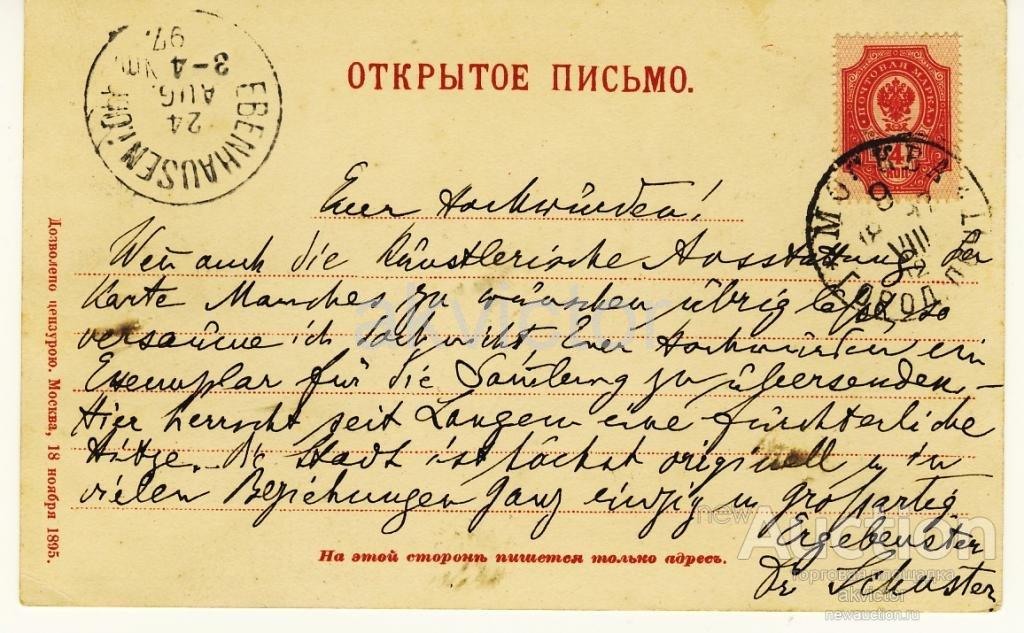 ОТКРЫТОЕ ПИСЬМО.
EBENHAUSEN
24
AUG.
3-4 Nm.
97.
ПОЧТОВАЯ МАРКА
4
КОП
МОСКВА
9
VIII
Euer Hochwürden!
Wen auch die Künstlerische Ausstattung der
Karte Manches zu wünschen übrig läßt, so
versäume ich doch nicht, Euer Hochwürden ein
Exemplar für die Samlung zu übersenden –
Hier herrscht seit Langem eine fürchterliche
Hitze. Die Stadt ist höchst originell u in
vielen Beziehungen ganz einzig u großartig.
Ergebenster
Dr Schuster
На этой сторонѣ пишется только адресъ.
Дозволено цензурою. Москва, 18 ноября 1895.
akvictor
newAuction
торговая площадка
akvictor
newauction.ru